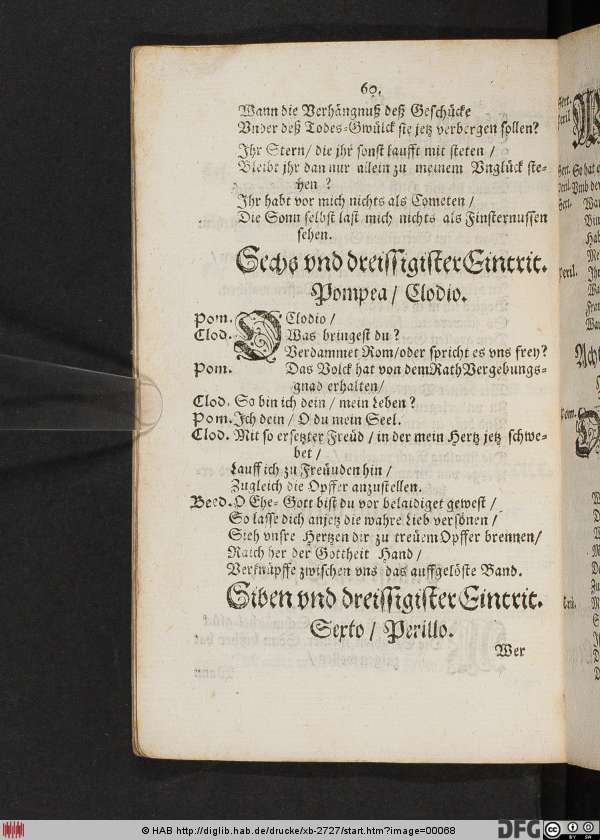 60.
Wann die Verhängnuß deß Geschücke
Vnder deß Todes-Gwülck sie jetz verbergen sollen?
Ihr Stern / die jhr sonst laufft mit steten /
Bleibt jhr dan nur allein zu meinem Vnglück ste-
hen ?
Ihr habt vor mich nichts als Cometen /
Die Sonn selbst last mich nichts als Finsternussen
sehen.
Sechs vnd dreissigister Eintrit.
Pompea / Clodio.
Pom. O Clodio /
Clod. Was bringest du ?
Verdammet Rom / oder spricht es vns frey?
Pom. Das Volck hat von dem Rath Vergebungs-
gnad erhalten /
Clod. So bin ich dein / mein Leben ?
Pom. Ich dein / O du mein Seel.
Clod. Mit so ersetzter Freüd / in der mein Hertz jetz schwe-
bet /
Lauff ich zu Freüuden hin /
Zugleich die Opffer anzustellen.
Beed. O Ehe-Gott bist du vor belaidiget gewest /
So lasse dich anjetz die wahre Lieb versönen /
Sieh vnsre Hertzen dir zu treüem Opffer brennen /
Raich her der Gottheit Hand /
Verknüpffe zwischen vns das auffgelöste Band.
Siben vnd dreissigister Eintrit.
Sexto / Perillo.
Wer
© HAB http://diglib.hab.de/drucke/xb-2727/start.htm?image=00068
DFG
BY SA